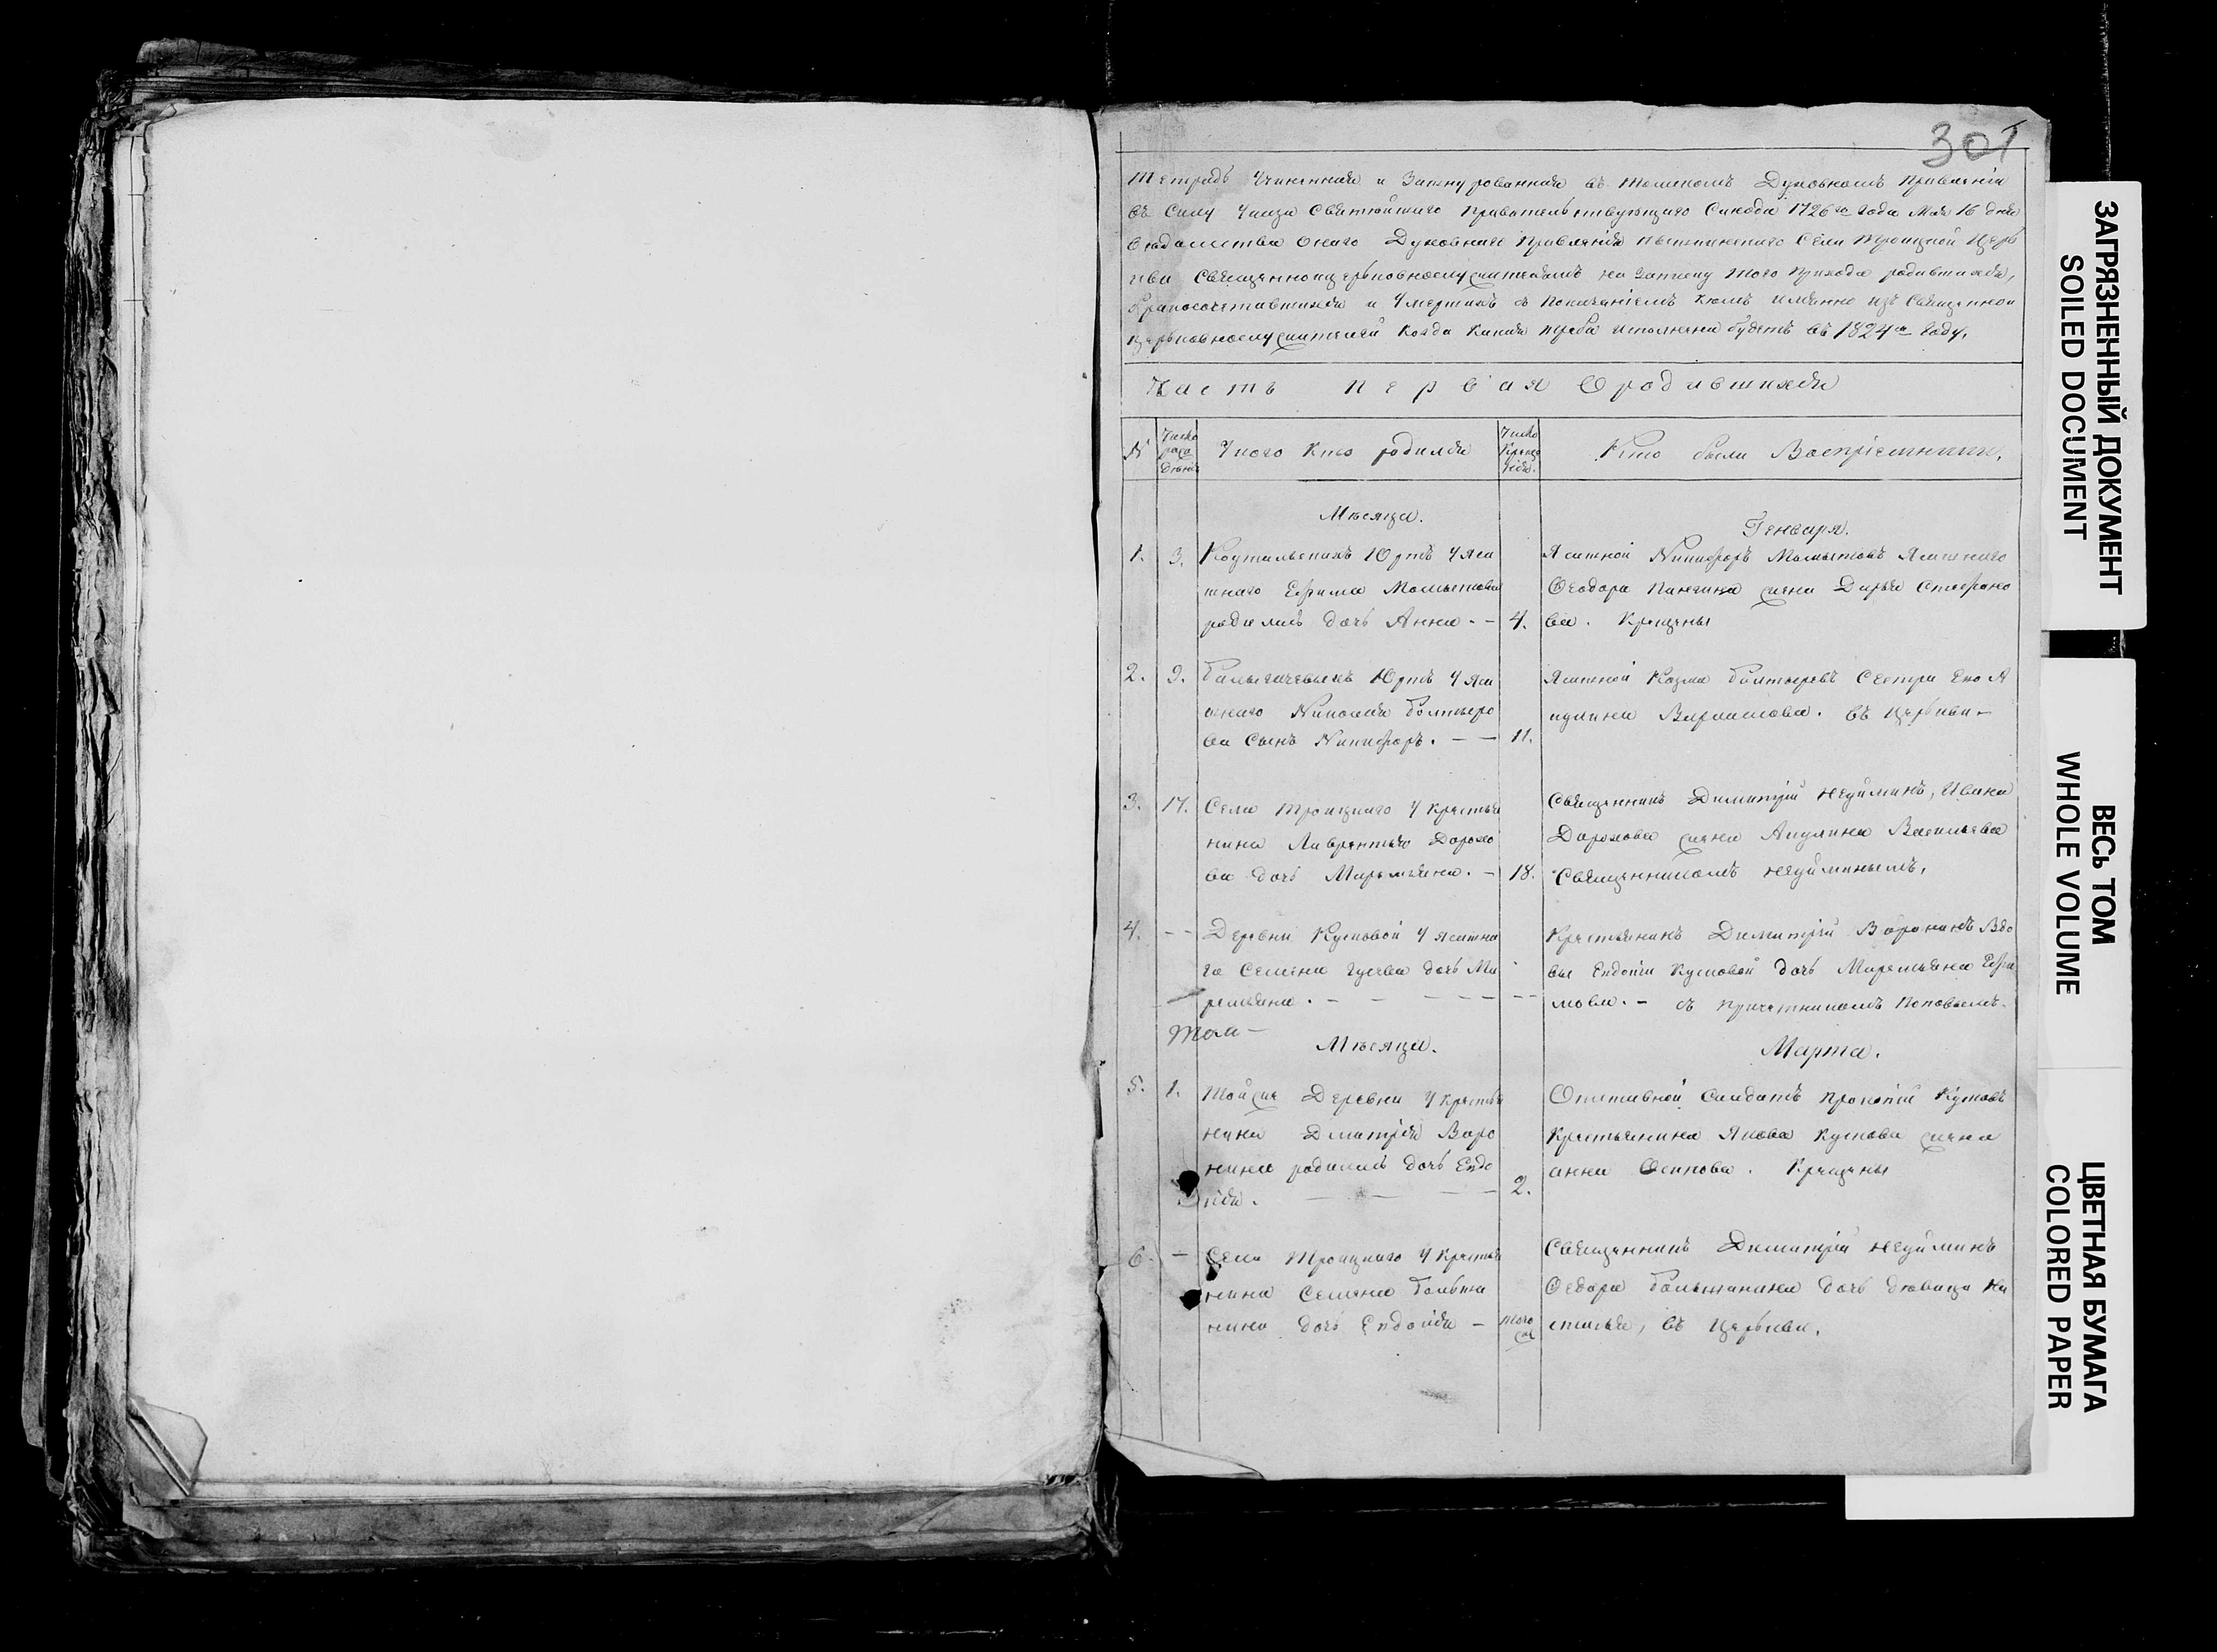 301
Тетрадь Учиненная и Зашнурованная въ Томскомъ Духовномъ Правленіи
въ Силу Указа Святѣйшаго Правительствующаго Синода 1726го Года Мая 16 дня
вѣдомства Онаго Духовнаго Правленія Села Троицкой Церь
кви Священноцерьковнослужителямъ на Записку Того Прихода родившихся,
бракосочетавшихся и Умершихъ съ Показаніемъ Кѣмъ имянно изъ Священно
церьковнослужителей Когда Какая треба исполнена будетъ въ 1824м Году.
Часть первая О родившихся
№
Число
рож
дѣнія
У кого Кто родился
Число
Креще
нія.
Кто были Воспріемники.
Мѣсяца.
Генваря.
1. 3. Юртъ У Яса
шнаго Ефима
родилась дочь Анна. - 4.
Ясашной Никифоръ Ясашнаго
Ѳеодора жена Дарья Стефано
ва. Крещены
2. 9. Юртъ У Яса
шнаго Николая Болтыро
ва Сынъ Никифоръ. - - 11.
Ясашной Козма Болтыревъ Сестра Его А
кулина. въ Церькви -
3. 17. Села Троицкаго У Крестья
нина Лаврентья Дорохо
ва дочь Маремьяна. - 18.
Священникъ Димитрій Неуйминъ, Ивана
Дорохова жена Акулина Васильева
Священникомъ Неуйминымъ.
4. - - Деревни Кусковой У ясашна
го Семена Гусева дочь Ма
ремьяна. - - - - - - -
Крестьянинъ Димитрій Воронинъ Вдо
вы Евдокіи Кусковой дочь Маремьяна Ефи
мова. - съ Причетникомъ Поповымъ.
Мѣсяца.
Марта.
5. 1. Той же Деревни У Крестья
нина Дмитрія Воро
нина родилась дочь Евдо
кія. - - - 2.
Отставной Салдатъ Прокопій Кусковъ
Крестьянина Якова Кускова жена
анна Осипова. Крещены
6. - Села Троицкаго У Крестья
нина Семена Больша
нина дочь Евдокія - того
же
Священникъ Димитрій Неуйминъ
Ѳедора Большанина дочь дѣвица На
стасья, въ Церькви.
ЗАГРЯЗНЕННЫЙ ДОКУМЕНТ
SOILED DOCUMENT
ВЕСЬ ТОМ
WHOLE VOLUME
ЦВЕТНАЯ БУМАГА
COLORED PAPER